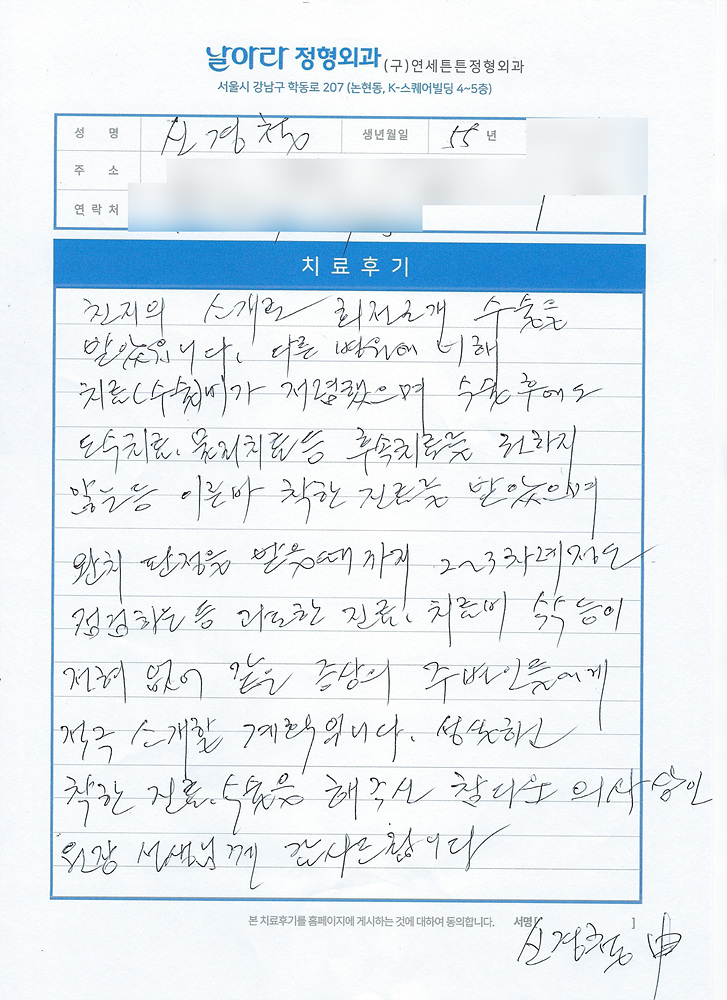 날아라 정형외과 (구)연세튼튼정형외과
서울시 강남구 학동로 207 (논현동, K-스퀘어빌딩 4~5층)
성 명 신경철 생년월일 55 년
주 소
연락처
치료후기
친지의 소개로 회전근개 수술을
받았습니다. 다른 병원에 비해
치료(수술)비가 저렴했으며 수술 후에도
도수치료, 물리치료 등 후속치료를 권하지
않는 등 이른바 착한 진료를 받았으며
완치 판정을 받을때 까지 2~3차례 정도
점검하는 등 과도한 진료, 치료비 등이
전혀 없어 같은 증상의 주변인들에게
적극 소개할 계획입니다. 성실하신
착한 진료, 수술을 해주신 참다운 의사상인
원장 선생님께 감사드립니다
본 치료후기를 홈페이지에 게시하는 것에 대하여 동의합니다. 서명[ ]
신경철 申